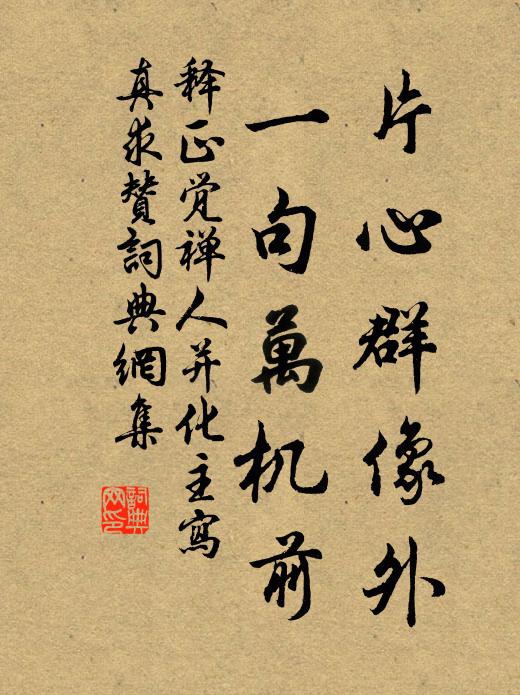 片心群像外
一句萬机前
释正觉禅人并化主寫
真求賛詞典網集
詞典
网印